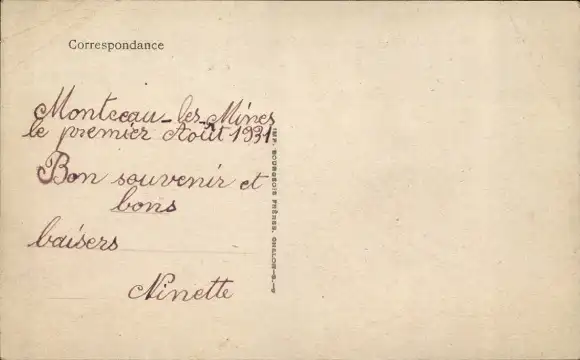 Correspondance
Montceau-les-Mines
le premier Août 1931
Bon souvenir et
bons
baisers
Ninette
IMP. BOURGEOIS FRÈRES, CHALON-S-S